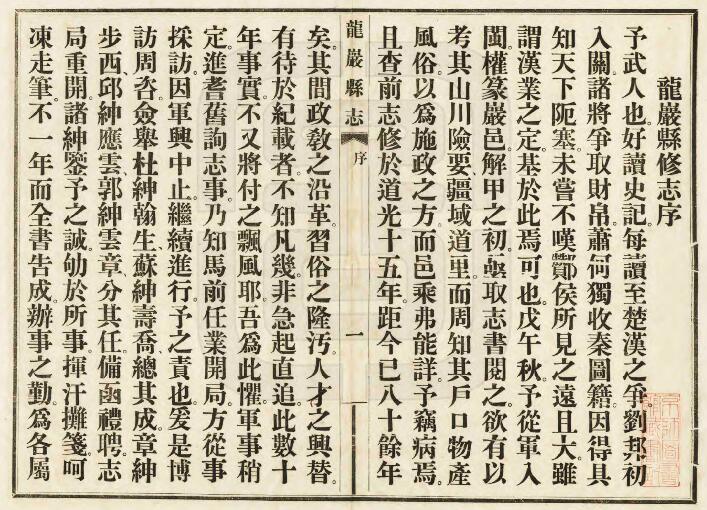 龍巖縣修志序
予武人也。好讀史記。每讀至楚漢之爭。劉邦初
入關。諸將爭取財帛。蕭何獨收秦圖籍。因得具
知天下阨塞。未嘗不嘆酇侯所見之遠且大。雖
謂漢業之定。基於此焉可也。戊午秋。予從軍入
閩。權篆巖邑。解甲之初。亟取志書閱之。欲有以
考其山川險要。疆域道里。而周知其戶口物產
風俗。以為施政之方。而邑乘弗能詳。予竊病焉。
且查前志修於道光十五年。距今已八十餘年
龍巖縣志
序
一
矣。其間政敎之沿革。習俗之隆汚。人才之興替。
有待於紀載者。不知凡幾。非急起直追。此數十
年事實。不又將付之飄風耶。吾為此懼。軍事稍
定。進耆舊詢志事。乃知馬前任業開局。方從事
採訪。因軍興中止。繼續進行。予之責也。爰是博
訪周咨。僉舉杜紳翰生、蘇紳壽喬、總其成。章紳
步西、邱紳應雲、郭紳雲章、分其任。備函禮聘。志
局重開。諸紳鑒予之誠。劬於所事。揮汗攤箋。呵
凍走筆。不一年而全書告成。辦事之勤。為各屬